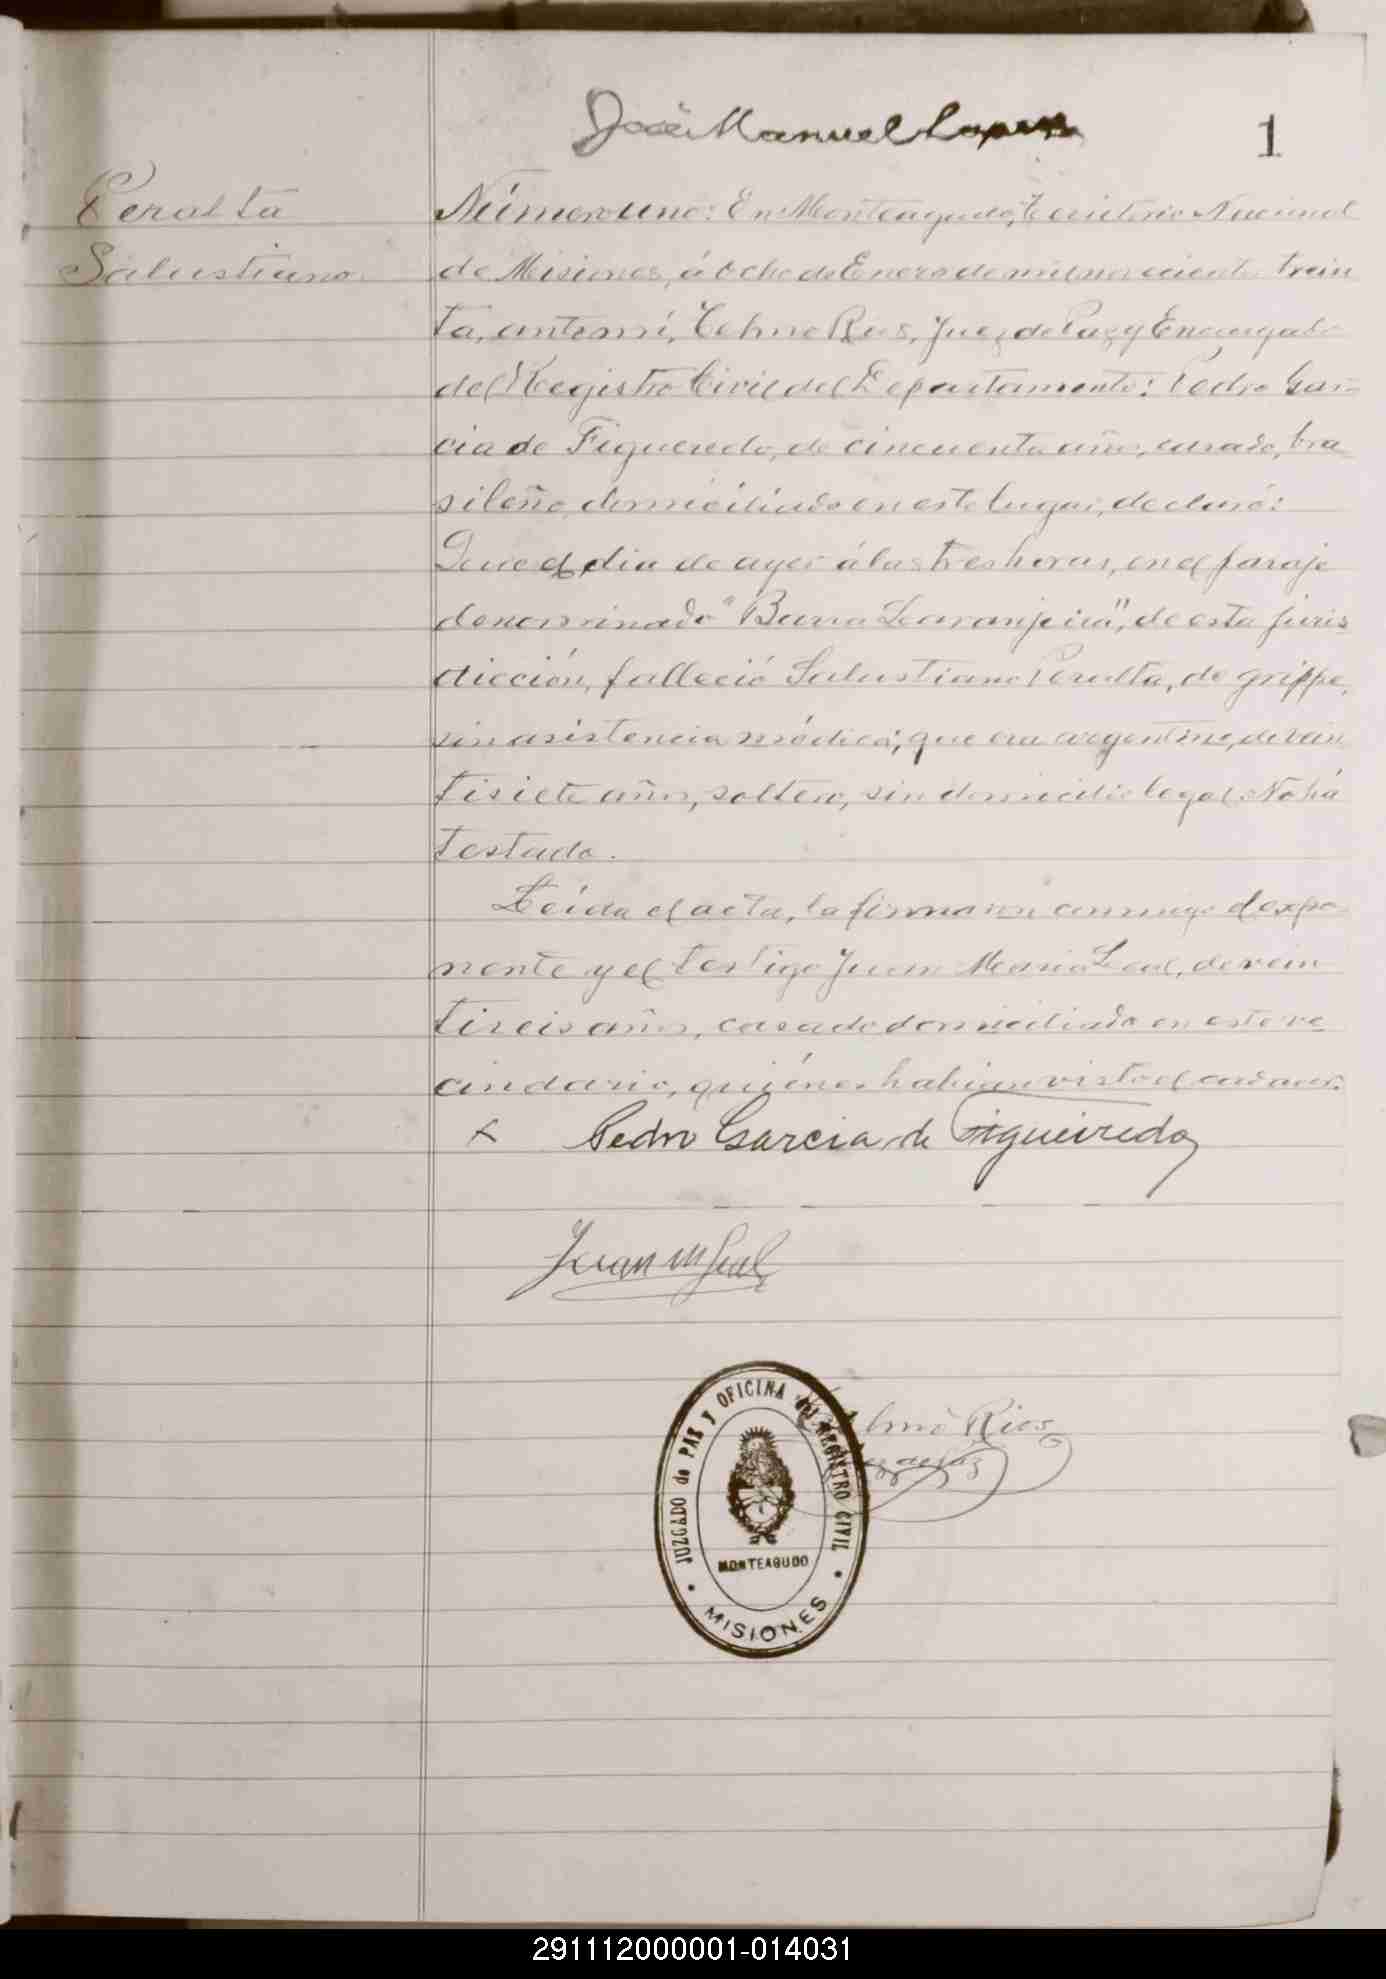 José Manuel Lopez
1
Peralta
Salustiano.
Número uno: En Monteagudo, Territorio Nacional
de Misiones, á ocho de Enero de mil novecientos trein
ta, ante mí, Telmo Rios, Juez de Paz y Encargado
del Registro Civil del Departamento: Pedro Gar-
cia de Figueredo, de cincuenta años, casado, bra
sileño, domiciliado en este lugar, declaró:
Que el dia de ayer á las tres horas, en el paraje
denominado "Barra Laranjeira", de esta juris
dicción, falleció Salustiano Peralta, de grippe,
sin asistencia médica; que era argentino, de vein
tisiete años, soltero, sin domicilio legal. No há
testado.
Leída el acta, la firmaron conmigo el expo-
nente y el testigo Juan Maria Leal, de vein
tiseis años, casado domiciliado en este ve
cindario, quiénes habian visto el cadaver.
x Pedro Garcia de Figueiredo
Juan M Leal
Telmo Rios
Juez de Paz
JUZGADO de PAZ Y OFICINA del REGISTRO CIVIL
MONTEAGUDO
• MISIONES •
291112000001-014031